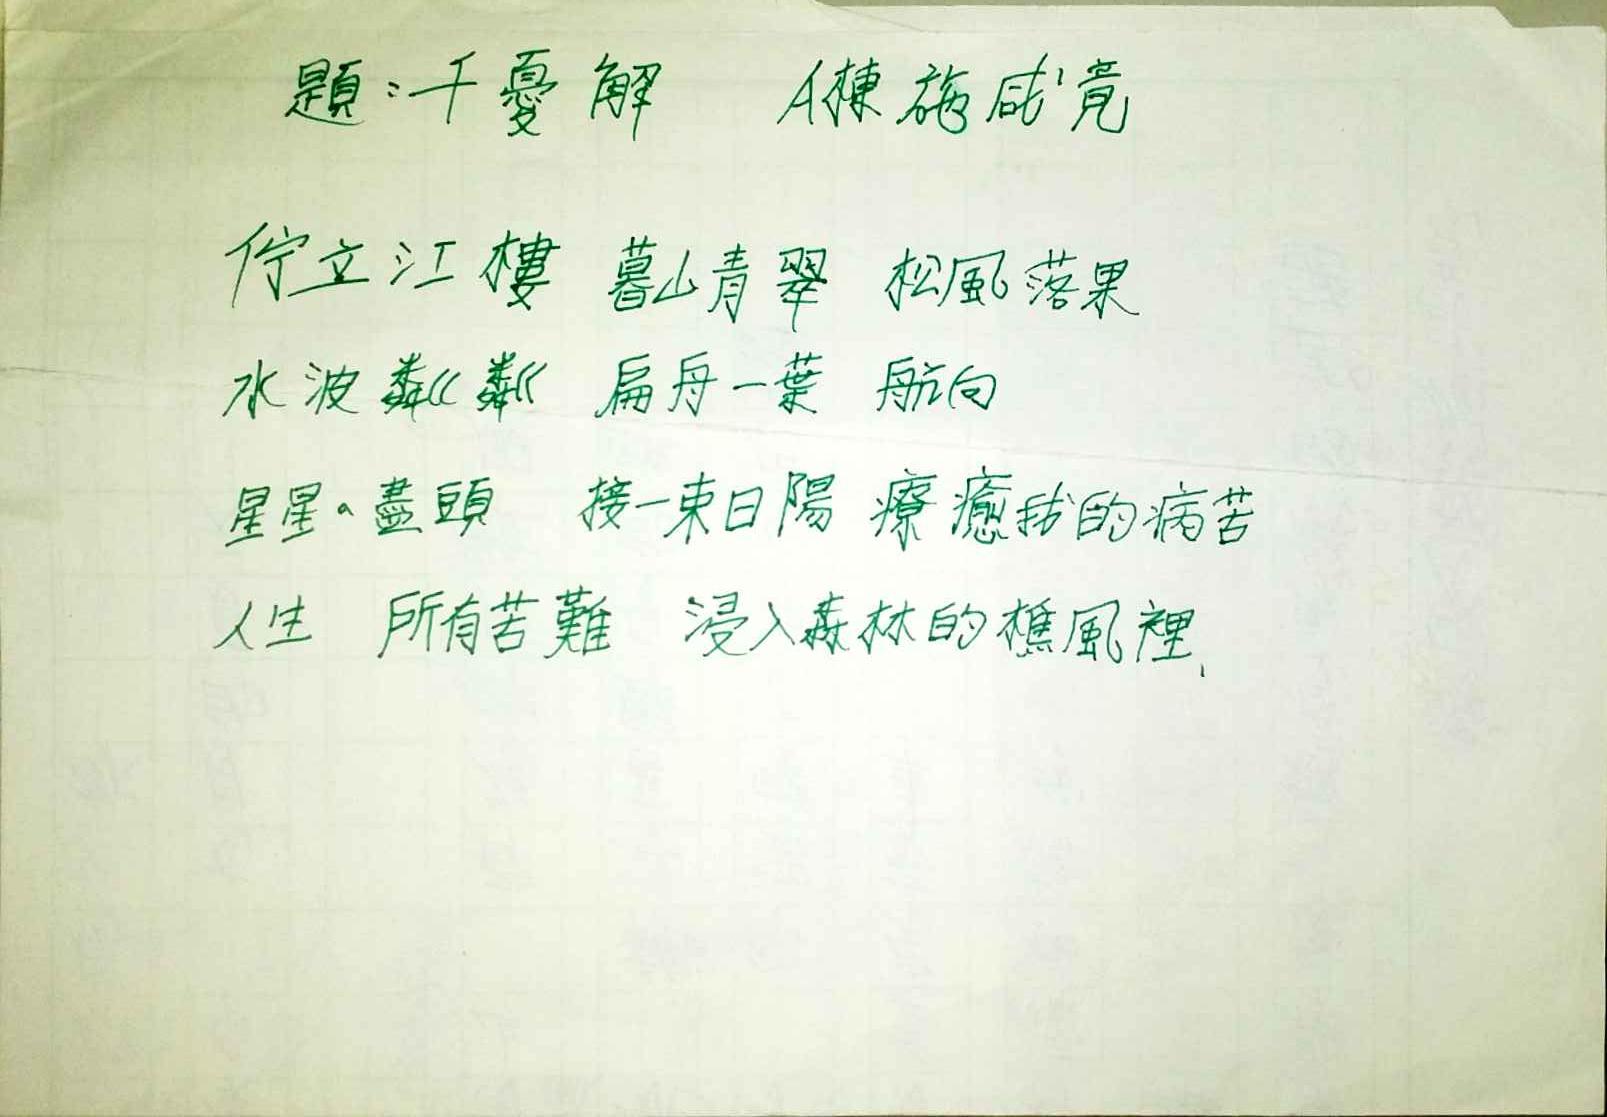 題：千憂解 A棟施咸竟
佇立江樓 暮山青翠 松風落果
水波粼粼 扁舟一葉 航向
星星。盡頭 接一束日陽 療癒我的病苦
人生 所有苦難 浸入森林的樵風裡、